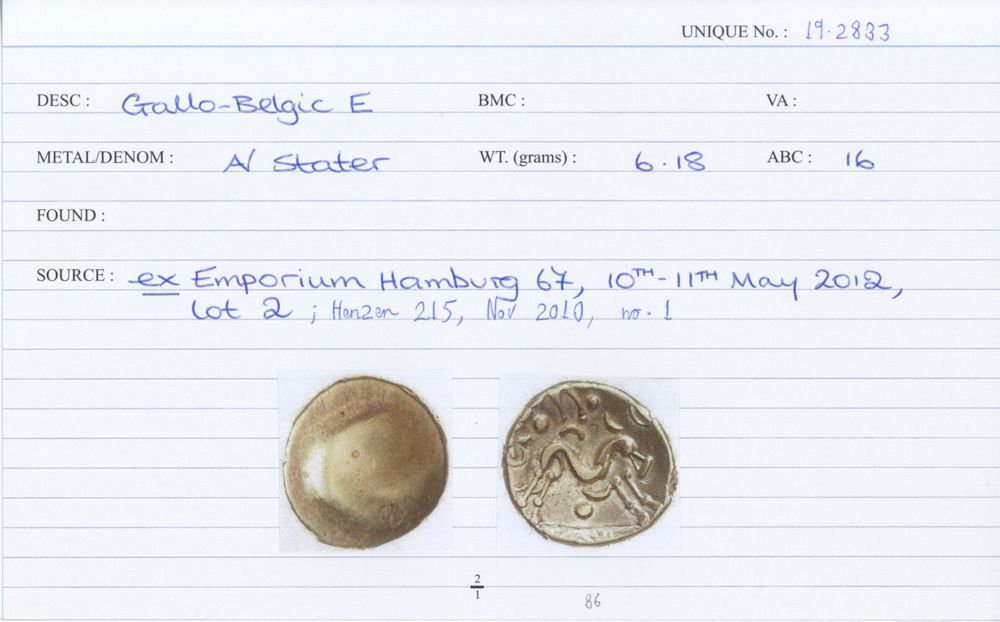 UNIQUE No. : 19.2833
DESC : Gallo-Belgic E BMC : VA :
METAL/DENOM : A/ Stater WT. (grams) : 6.18 ABC : 16
FOUND :
SOURCE : ex Emporium Hamburg 67, 10TH-11TH May 2012,
Lot 2 ; Henzen 215, Nov 2010, no. 1
2
1
86